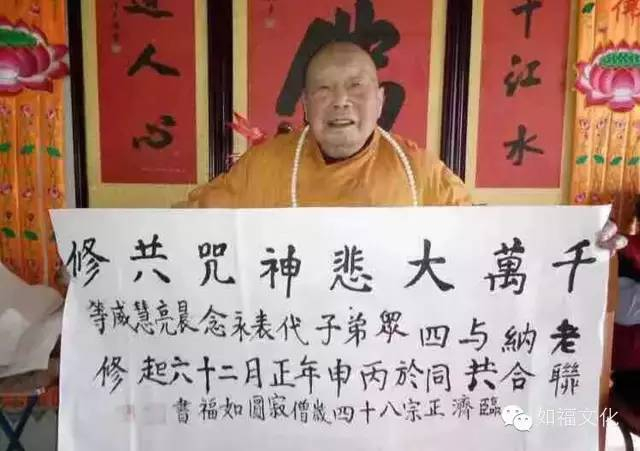 佛
千江水
道人心
千萬大悲神咒共修
老納与四眾弟子代表永念晨亮慧威等
聯合共同於丙申年正月二十六起修
臨濟正宗八十四歲僧寂圓如福書
如福文化